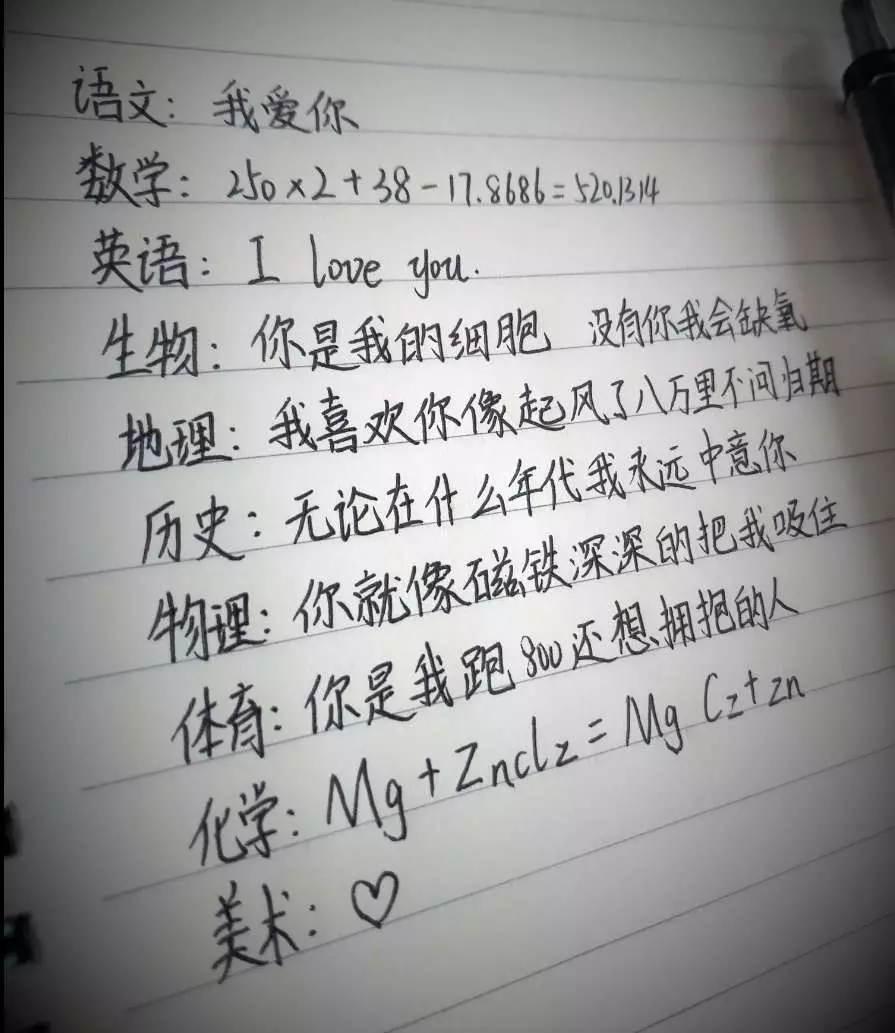 语文：我爱你
数学：250×2+38-17.8686=520.1314
英语：I love you.
生物：你是我的细胞 没有你我会缺氧
地理：我喜欢你像起风了八万里不问归期
历史：无论在什么年代我永远中意你
物理：你就像磁铁深深的把我吸住
体育：你是我跑800还想拥抱的人
化学：Mg+Zncl2=Mg C2+zn
美术：♡